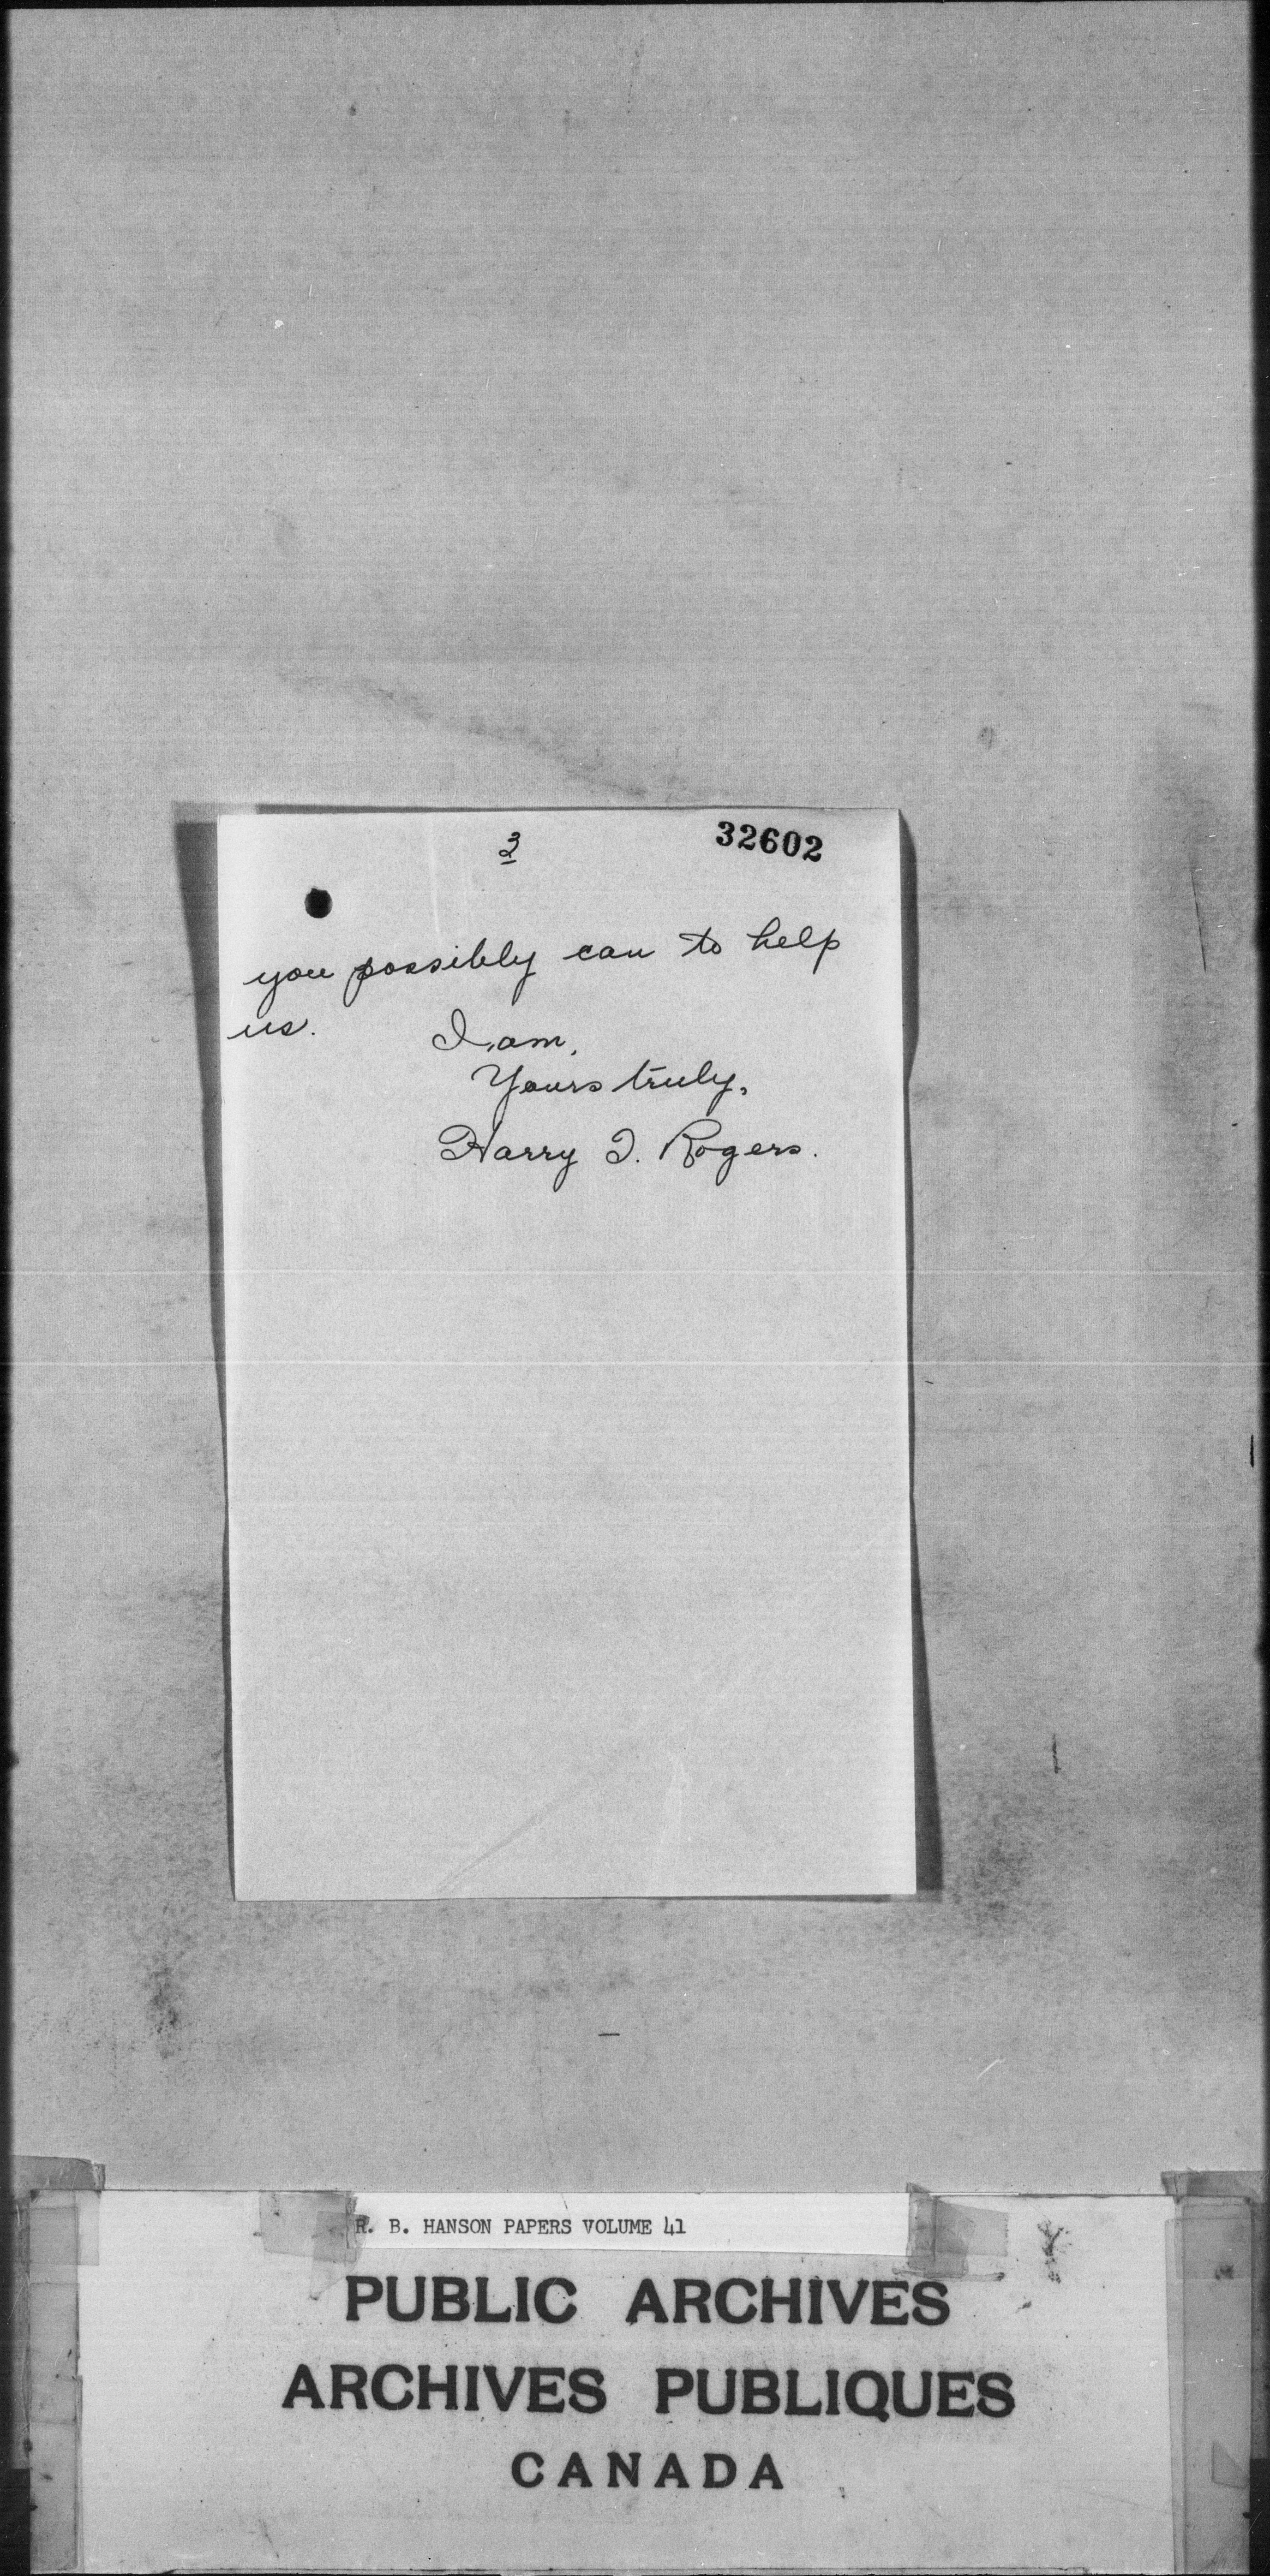 3
32602
you possibly can to help
us.
I am,
Yours truly,
Harry I. Rogers.
R. B. HANSON PAPERS VOLUME 41
PUBLIC ARCHIVES
ARCHIVES PUBLIQUES
CANADA